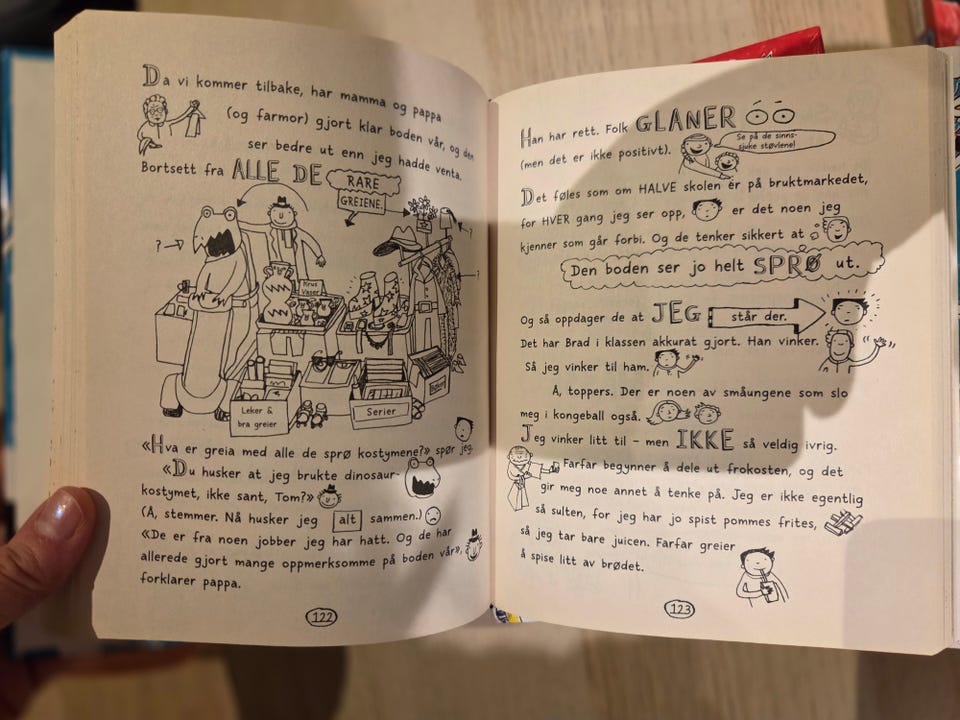 Da vi kommer tilbake, har mamma og pappa
(og farmor) gjort klar boden vår, og den
ser bedre ut enn jeg hadde venta.
Bortsett fra ALLE DE RARE
GREIENE.
?
?
?
Krus
Vaser
Leker &
bra greier
Serier
«Hva er greia med alle de sprø kostymene?» spør jeg.
«Du husker at jeg brukte dinosaur-
kostymet, ikke sant, Tom?»
(Å, stemmer. Nå husker jeg alt sammen.)
«De er fra noen jobber jeg har hatt. Og de har
allerede gjort mange oppmerksomme på boden vår»,
forklarer pappa.
122
Han har rett. Folk GLANER
(men det er ikke positivt).
Se på de sinns-
sjuke støvlene!
Det føles som om HALVE skolen er på bruktmarkedet,
for HVER gang jeg ser opp, er det noen jeg
kjenner som går forbi. Og de tenker sikkert at
Den boden ser jo helt SPRØ ut.
Og så oppdager de at JEG står der.
Det har Brad i klassen akkurat gjort. Han vinker.
Så jeg vinker til ham.
Å, toppers. Der er noen av småungene som slo
meg i kongeball også.
Jeg vinker litt til – men IKKE så veldig ivrig.
Farfar begynner å dele ut frokosten, og det
gir meg noe annet å tenke på. Jeg er ikke egentlig
så sulten, for jeg har jo spist pommes frites,
så jeg tar bare juicen. Farfar greier
å spise litt av brødet.
123